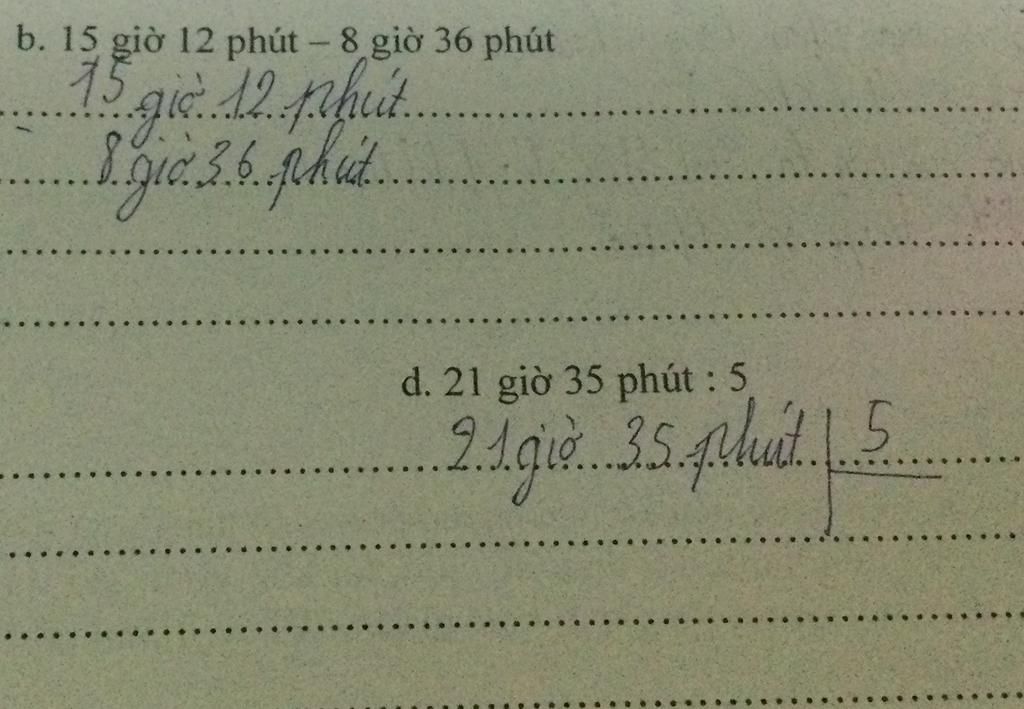 b. 15 giờ 12 phút – 8 giờ 36 phút
15 giờ 12 phút
-
8 giờ 36 phút
d. 21 giờ 35 phút : 5
21 giờ 35 phút 5